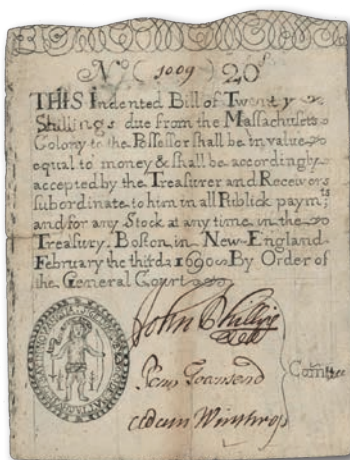 No (1009) 20s
THIS Indented Bill of Twenty
Shillings due from the Massachusets
Colony to the Possessor shall be in value
equal to money & shall be accordingly
accepted by the Treasurer and Receivers
subordinate to him in all Publick paymts
and for any Stock at any time in the
Treasury. Boston in New-England
February the third 1690 By Order of
the General Court
John Phillips
Penn Townsend
Adam Winthrop
Comtee